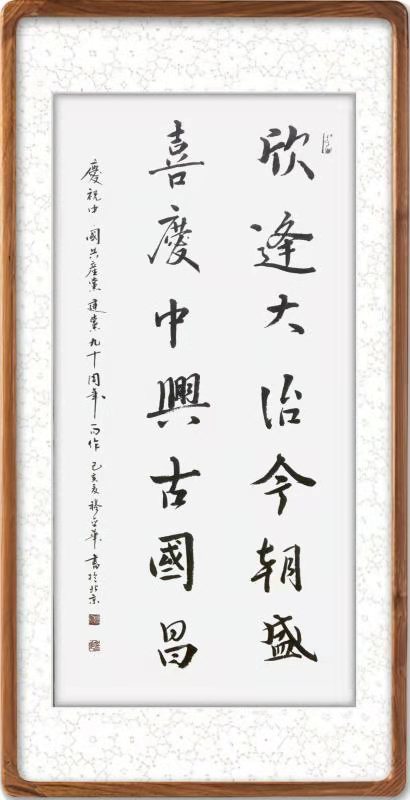 欣逢大治今朝盛
喜慶中興古國昌
慶祝中國共產黨建黨九十周年而作 己亥夏穆 華書於北京